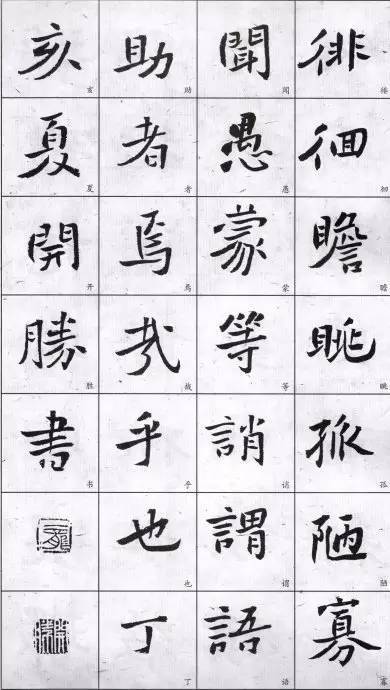 徘徊瞻眺孤陋寡
徘徊瞻眺孤陋寡
聞愚蒙等誚謂語
闻愚蒙等诮谓语
助者焉哉乎也丁
助者焉哉乎也丁
亥夏開勝書
亥夏开胜书